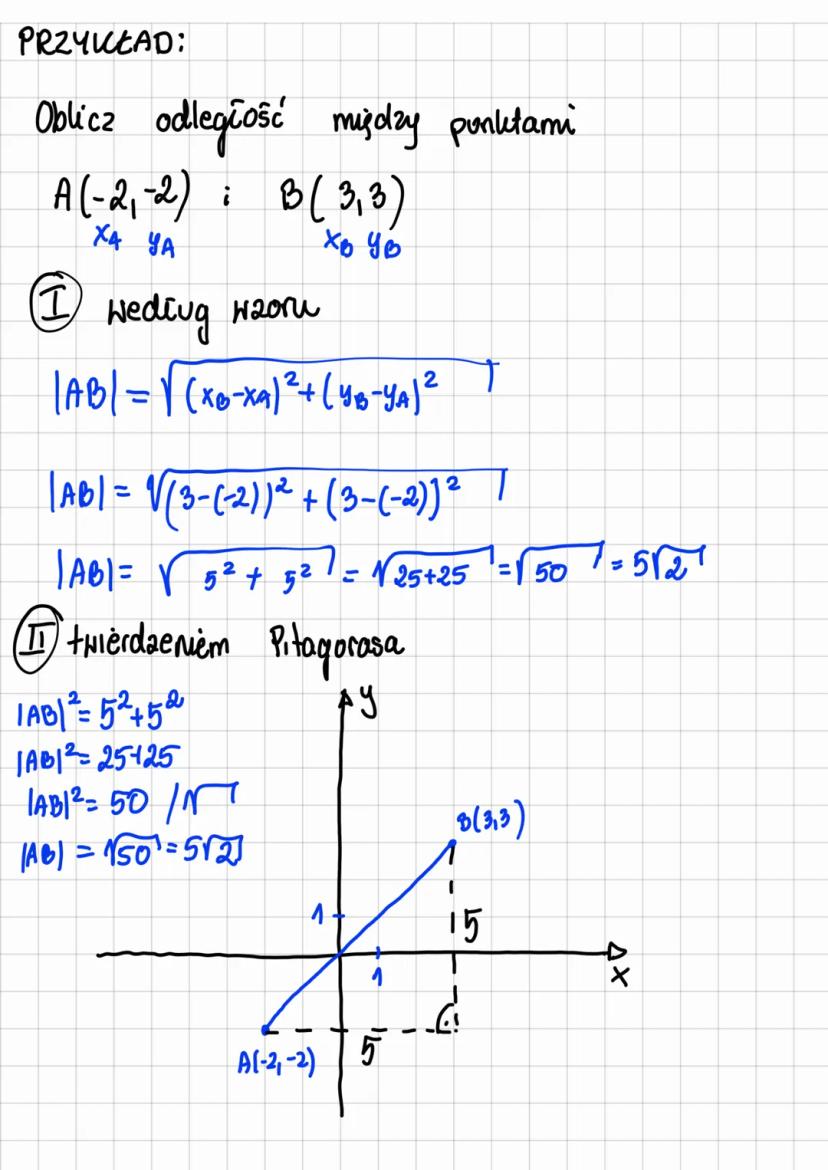 PRZYKŁAD:
Oblicz odległość między punktami
A(-2,-2) i B(3,3)
xA yA xB yB
I według wzoru
|AB| = √(xB-xA)²+(yB-yA)²
|AB| = √(3-(-2))² + (3-(-2))²
|AB| = √5² + 5² = √25+25 = √50 = 5√2
II twierdzeniem Pitagorasa
|AB|² = 5²+5²
|AB|² = 25+25
|AB|² = 50 /√
|AB| = √50 = 5√2
y
B(3,3)
1
5
1
x
A(-2,-2)
5